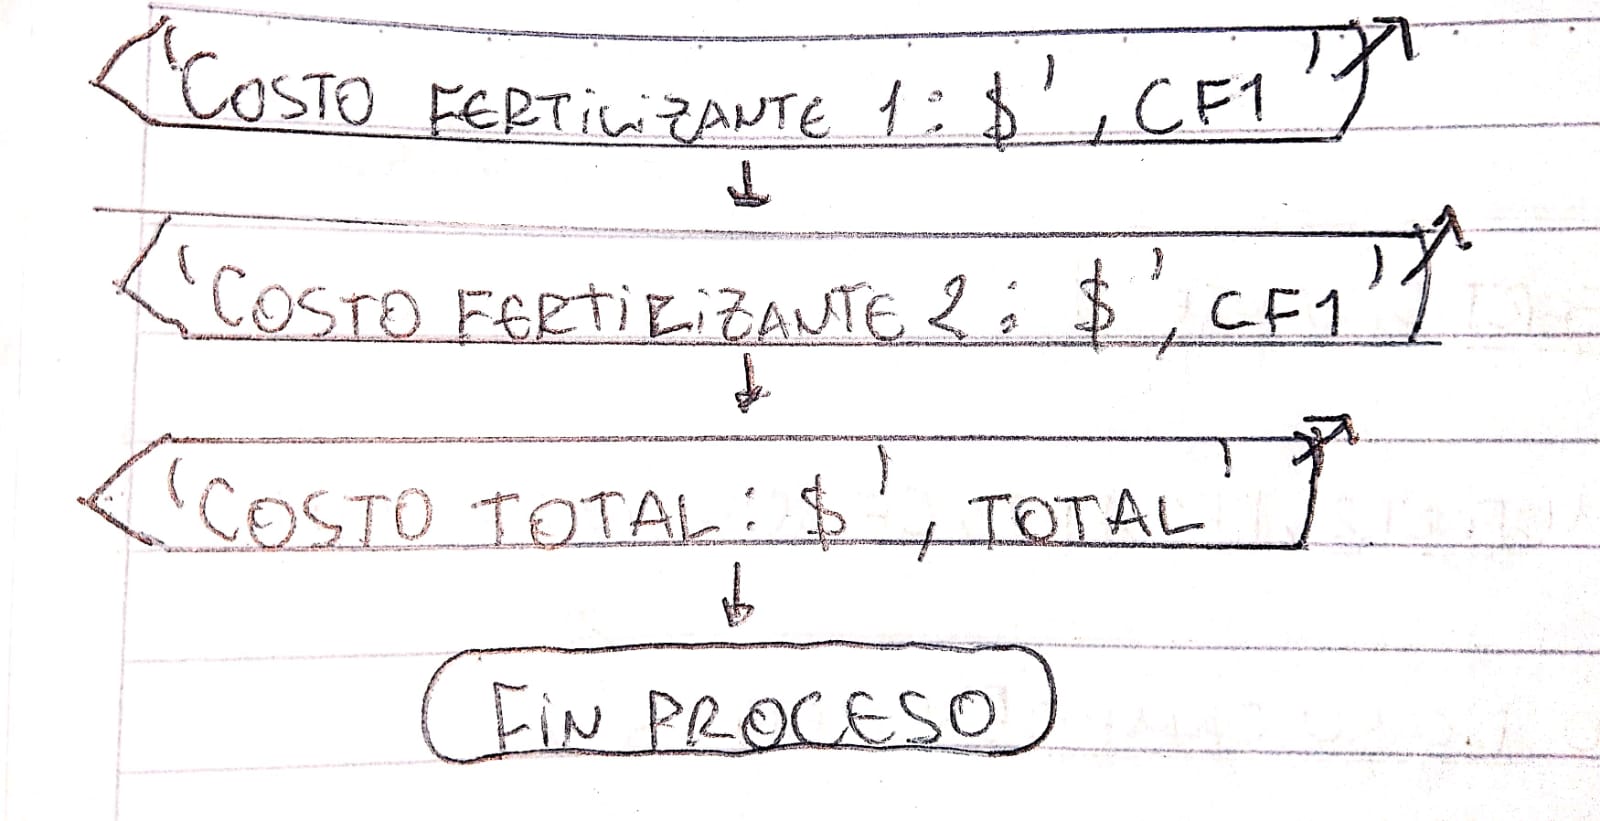 'COSTO FERTILIZANTE 1: $', CF1'
'COSTO FERTILIZANTE 2: $', CF1'
'COSTO TOTAL: $', TOTAL'
FIN PROCESO